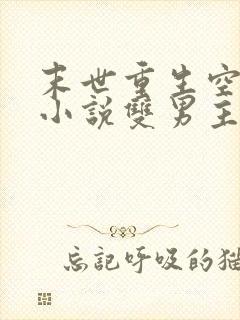 末世重生空
小說雙男主
忘記呼吸的猫